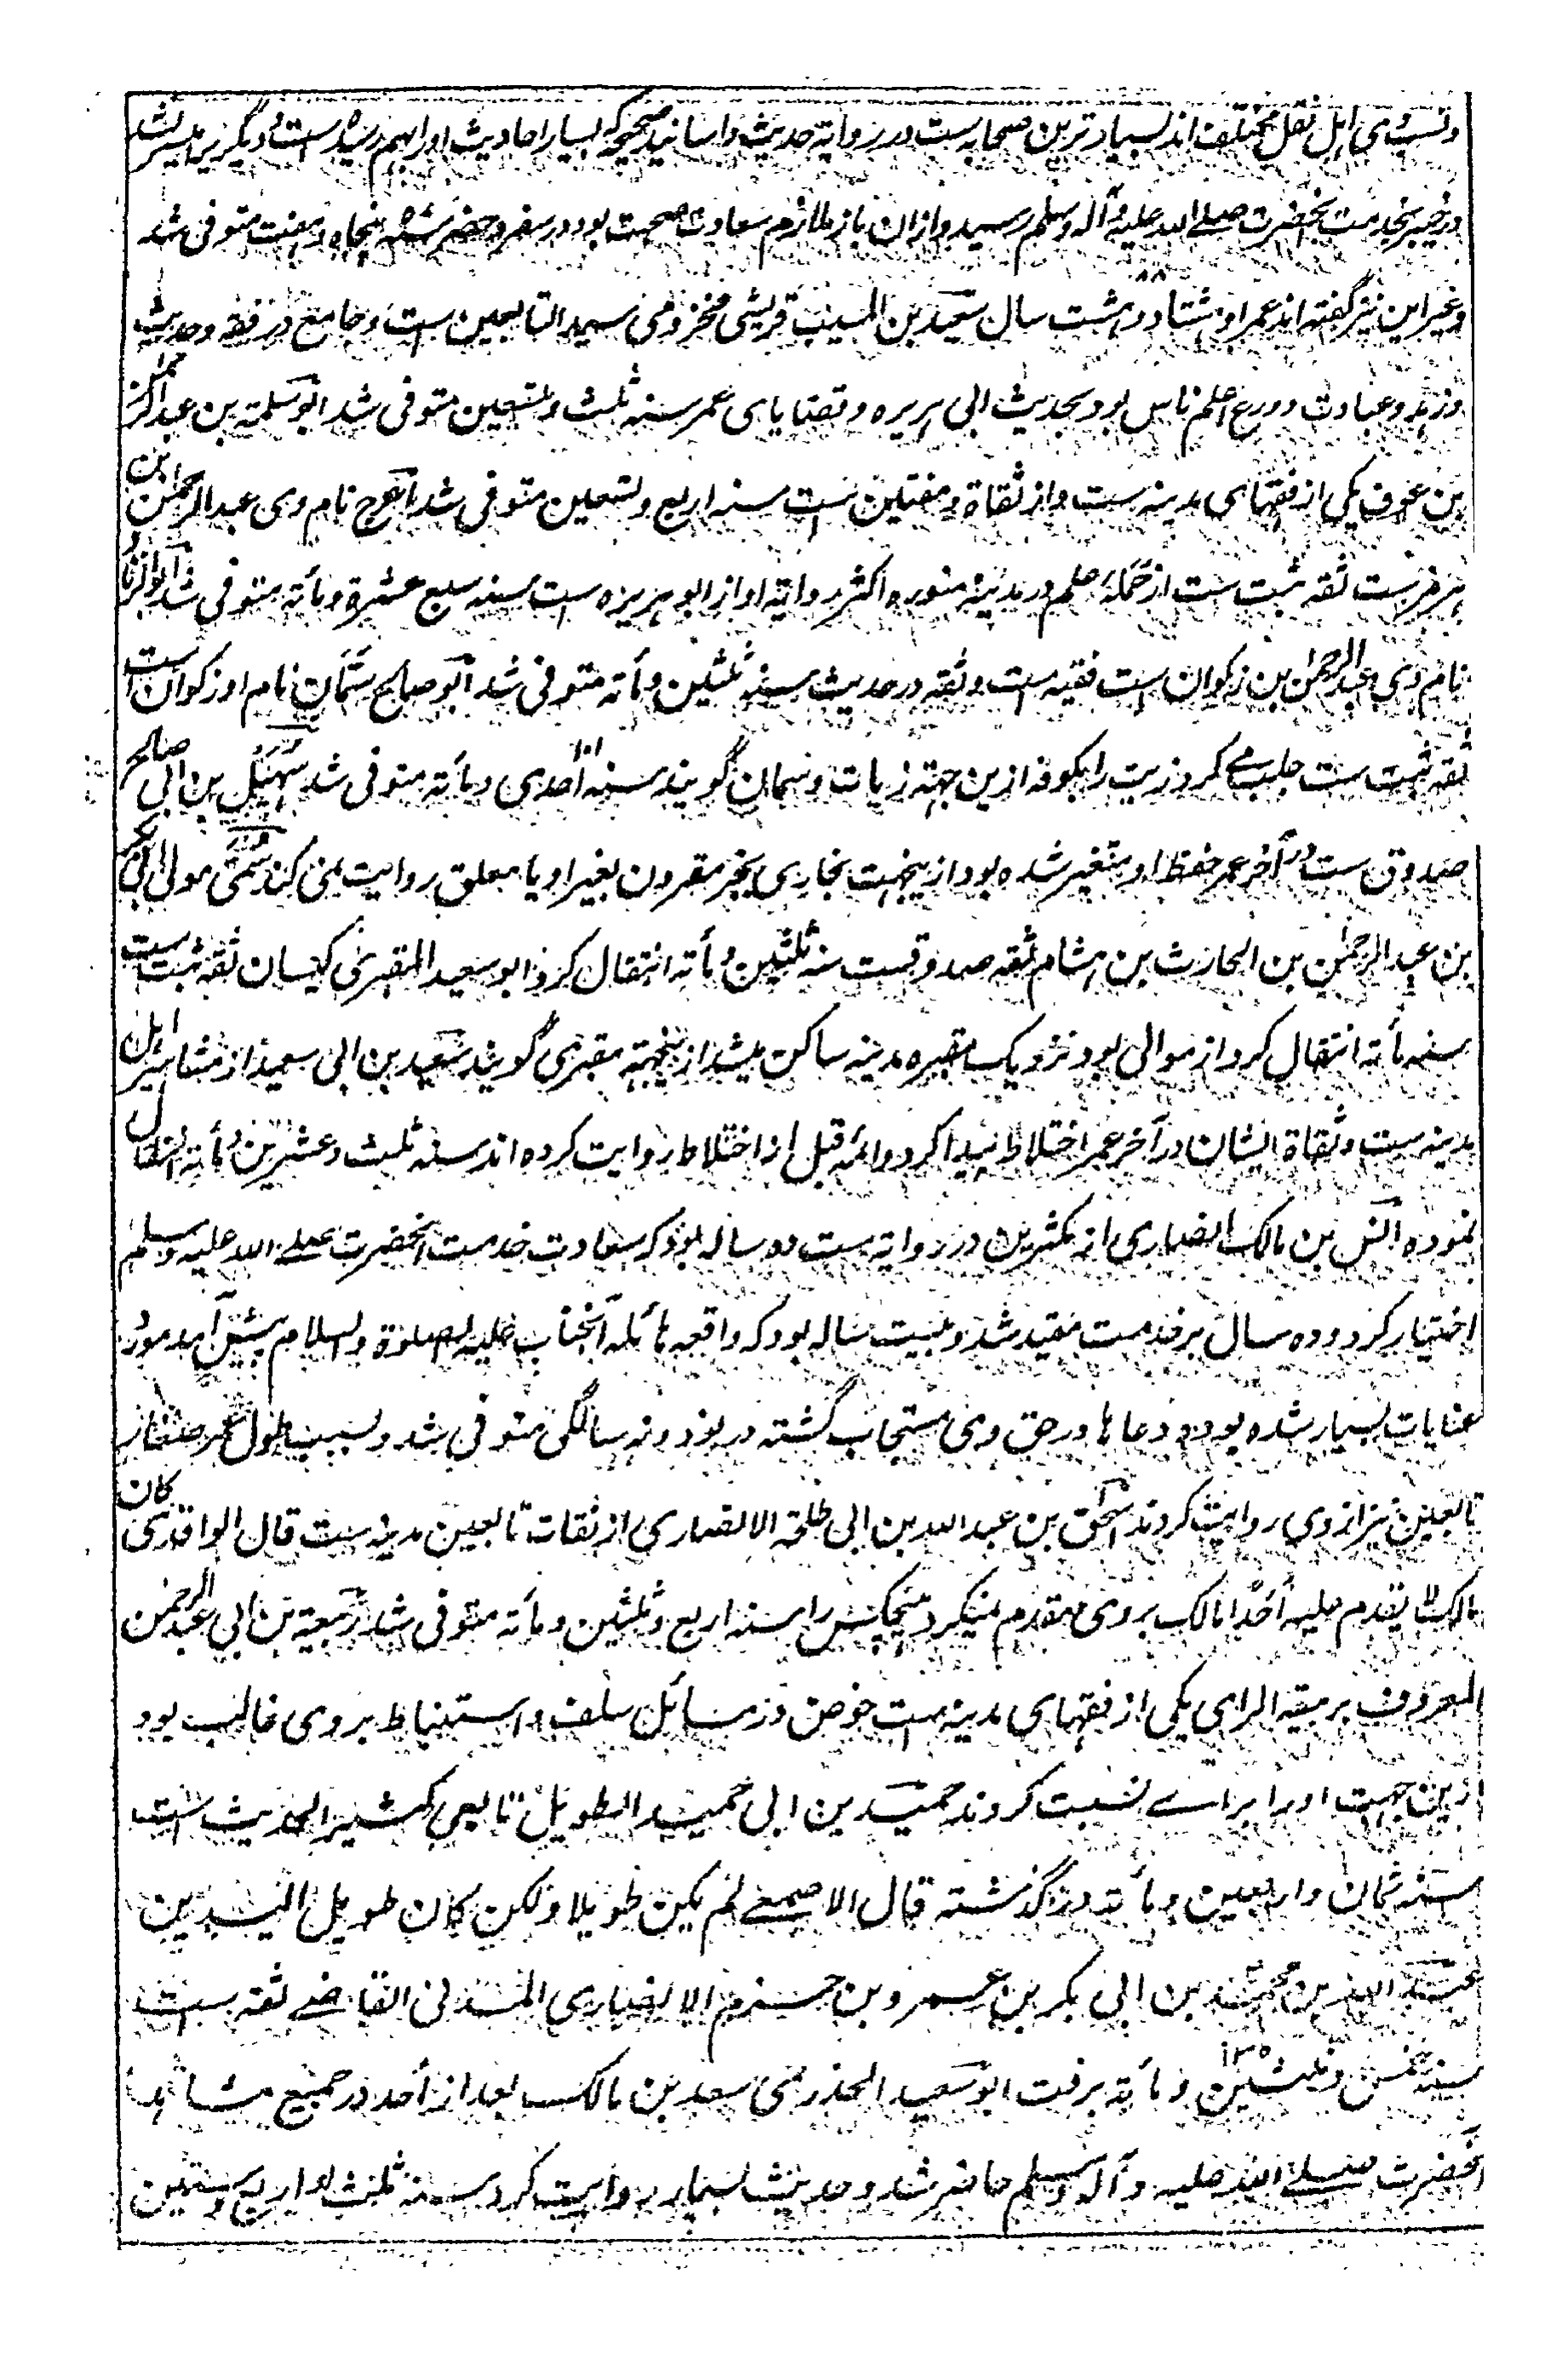 ونسب وی اہل نقل مختلف اند بسیار ترین صحابہ ست در روایۃ حدیث واسانید صحیحہ کہ بسیار احادیث او را بہم رسیدہ ست و دیگر یرا میسر نشد
در خیبر بخدمت آنحضرت صلے اللہ علیہ وآلہ وسلم رسید وازان باز ملازم سعادت صحبت بود در سفر و حضر سنہ پنجاہ و ہفت متوفی شد
وغیر این نیز گفتہ اند عمر او ہشتاد و ہشت ۸۸ سال سعید بن المسیب قریشی مخزومی سید التابعین ست و جامع در فقہ و حدیث
و زہد و عبادت و ورع اعلم ناس بود بحدیث ابی ہریرہ و قضایای عمر سنہ ثلث و تسعین متوفی شد ابو سلمۃ بن عبد الرحمن
بن عوف یکی از فقہای مدینہ ست و از ثقاۃ و مفتین ست سنہ اربع و تسعین متوفی شد اعرج نام وی عبد الرحمن ابن
ہرمز ست ثقہ ثبت ست از حملۂ علم در مدینۂ منورہ اکثر روایۃ او از ابو ہریرہ ست سنہ سبع عشرۃ و مأتہ متوفی شد ابو الزناد
نام وی عبد الرحمن بن زکوان ست فقیہ ست و ثقہ در حدیث سنہ ثلثین و مأتہ متوفی شد ابو صالح سمّان نام او زکوان ست
ثقہ ثبت ست جلب مے کرد زیت را بکوفہ ازین جہتہ زیات و سمان گویند سنہ احدی ۱۰۱ و مأتہ متوفی شد سہیل بن ابی صالح
صدوق ست در آخر عمر حفظ او متغیر شدہ بود ازینجہت بخاری بجز مقرون بغیر او یا معلق روایت نمی کند سمی مولی ابی بکر
بن عبد الرحمن بن الحارث بن ہشام ثقہ صدوقست سنہ ثلثین و مأتہ انتقال کرد ابو سعید المقبری کیسان ثقہ ثبت ست
سنہ مأتہ انتقال کرد از موالی بود نزدیک مقبرہ مدینہ ساکن میشد ازینجہتہ مقبری گویند سعید بن ابی سعید از مشاہیر اہل
مدینہ ست و ثقاۃ ایشان در آخر عمر اختلاط پیدا کرد و ائمہ قبل از اختلاط روایت کردہ اند سنہ ثلث و عشرین و مأتہ انتقال
نمودہ انس بن مالک انصاری از مکثرین در روایۃ ست دہ سالہ بود کہ سعادت خدمت آنحضرت صلے اللہ علیہ وسلم
اختیار کرد و دہ سال بر خدمت مقید شد و بیست سالہ بود کہ واقعہ ہائلہ آنجناب علیہ الصلوۃ والسلام پیش آمد مورد
عنایات بسیار شدہ بود و دعاہا در حق وی مستجاب گشتہ در نود و نہ سالگی متوفی شد و بسبب طول عمر صغار
تابعین نیز از وی روایت کردند اسحق بن عبد اللہ بن ابی طلحۃ الانصاری از ثقات تابعین مدینہ ست قال الواقدی کان
مالک لا یقدم علیہ أحدًا مالک بر وی مقدم نمیکرد ہیچکس را سنہ اربع و ثلثین و مأتہ متوفی شد ربیعۃ بن ابی عبد الرحمن
المعروف بربیعۃ الرای یکی از فقہای مدینہ ست خوض در مسائل سلف و استنباط بر وی غالب بود
ازین جہت او را براے نسبت کردند حمید بن ابی حمید الطویل تابعی کثیر الحدیث ست
سنہ ثمان و اربعین و مأتہ در گذشتہ قال الاصمعے لم یکن طویلا و لکن کان طویل الیدین
عبد اللہ بن محمد بن ابی بکر بن عمرو بن حزم الانصاری المدنی القاضے ثقہ ست
سنہ خمس و ثلثین ۱۳۵ و مأتہ برفت ابو سعید الخدری سعد بن مالک بعد از أحد در جمیع مشاہد
آنحضرت صلے اللہ علیہ و آلہ وسلم حاضر شد و حدیث بسیار روایت کرد سنہ ثلث او اربع و ستین